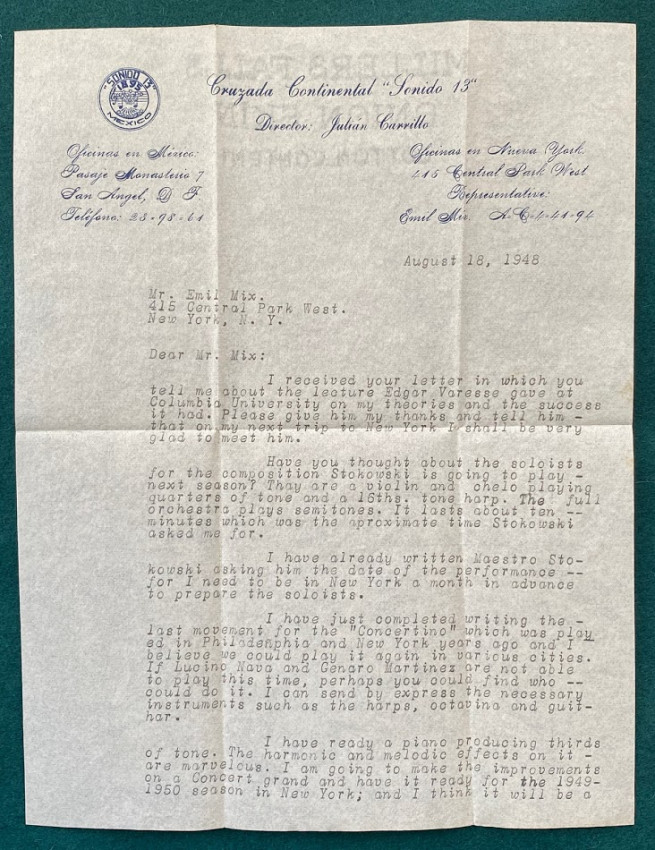 "SONIDO 13"
1895
MEXICO
Cruzada Continental "Sonido 13"
Director: Julián Carrillo
Oficinas en México:
Pasaje Monasterio 7
San Angel, D F
Teléfono: 28-98-41
Oficinas en Nueva York.
415 Central Park West.
Representative:
Emil Mix. A-C-4-41-94
August 18, 1948
Mr. Emil Mix.
415 Central Park West.
New York, N. Y.
Dear Mr. Mix:
I received your letter in which you
tell me about the lecture Edgar Varesse gave at
Columbia University on my theories and the success
it had. Please give him my thanks and tell him -
that on my next trip to New York I shall be very
glad to meet him.
Have you thought about the soloists
for the composition Stokowski is going to play -
next season? Thay are a violin and chelo playing
quarters of tone and a 16ths. tone harp. The full
orchestra plays semitones. It lasts about ten --
minutes which was the aproximate time Stokowski
asked me for.
I have already written Maestro Sto-
kowski asking him the date of the performance --
for I need to be in New York a month in advance
to prepare the soloists.
I have just completed writing the -
last movement for the "Concertino" which was play
ed in Philadenphia and New York years ago and I
believe we could play it again in various cities.
If Lucino Nava and Genaro Martinez are not able
to play this time, perhaps you could find who --
could do it. I can send by express the necessary
instruments such as the harps, octavina and guit-
har.
I have ready a piano producing thirds
of tone. The harmonic and melodic effects on it -
are marvelous. I am going to make the improvements
on a Concert grand and have it ready for the 1949-
1950 season in New York; and I think it will be a